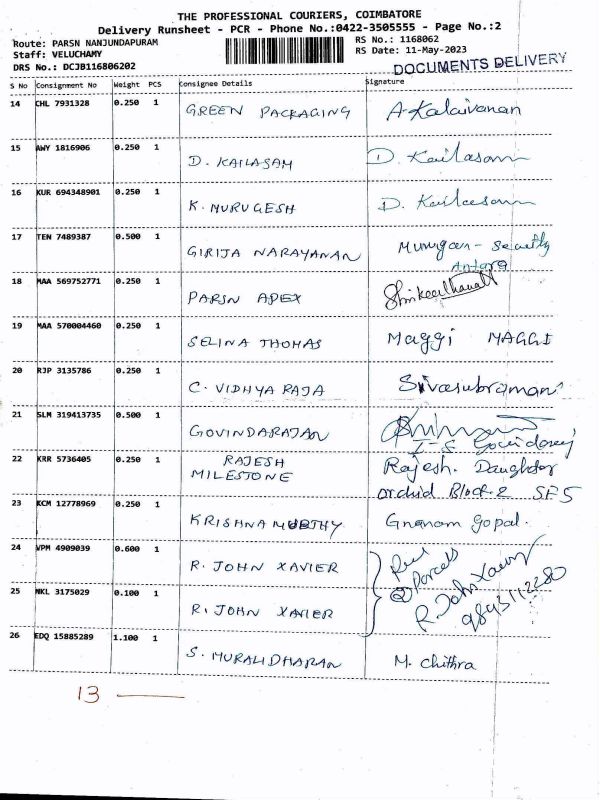 THE PROFESSIONAL COURIERS, COIMBATORE
Delivery Runsheet - PCR - Phone No.:0422-3505555 - Page No.:2
Route: PARSN NANJUNDAPURAM RS No.: 1168062
Staff: VELUCHAMY RS Date: 11-May-2023
DRS No.: DCJB116806202 DOCUMENTS DELIVERY
S No Consignment No Weight PCS Consignee Details Signature
14 CHL 7931328 0.250 1 GREEN PACKAGING A. Kalaivanan
15 AWY 1816906 0.250 1 D. KAILASAM D. Kailasam
16 KUR 694348901 0.250 1 K. MURUGESH D. Kailasam
17 TEN 7489387 0.500 1 GIRIJA NARAYANAN Murugan - Security
Antara
18 MAA 569752771 0.250 1 PARSN APEX
19 MAA 570004460 0.250 1 SELINA THOMAS Maggi MAGGI
20 RJP 3135786 0.250 1 C. VIDHYA RAJA Sivasubraman
21 SLM 319413735 0.500 1 GOVINDARAJAN
22 KRR 5736405 0.250 1 RAJESH Rajesh. Daughter
MILESTONE Orchid Block-2 SF5
23 KCM 12778969 0.250 1 KRISHNAMURTHY Gnanam gopal.
24 VPM 4909039 0.600 1 R. JOHN XAVIER
25 NKL 3175029 0.100 1 R. JOHN XAVIER
Parcels
R. John Xavier
9843112280
26 EDQ 15885289 1.100 1 S. MURALIDHARAN M. Chithra
13